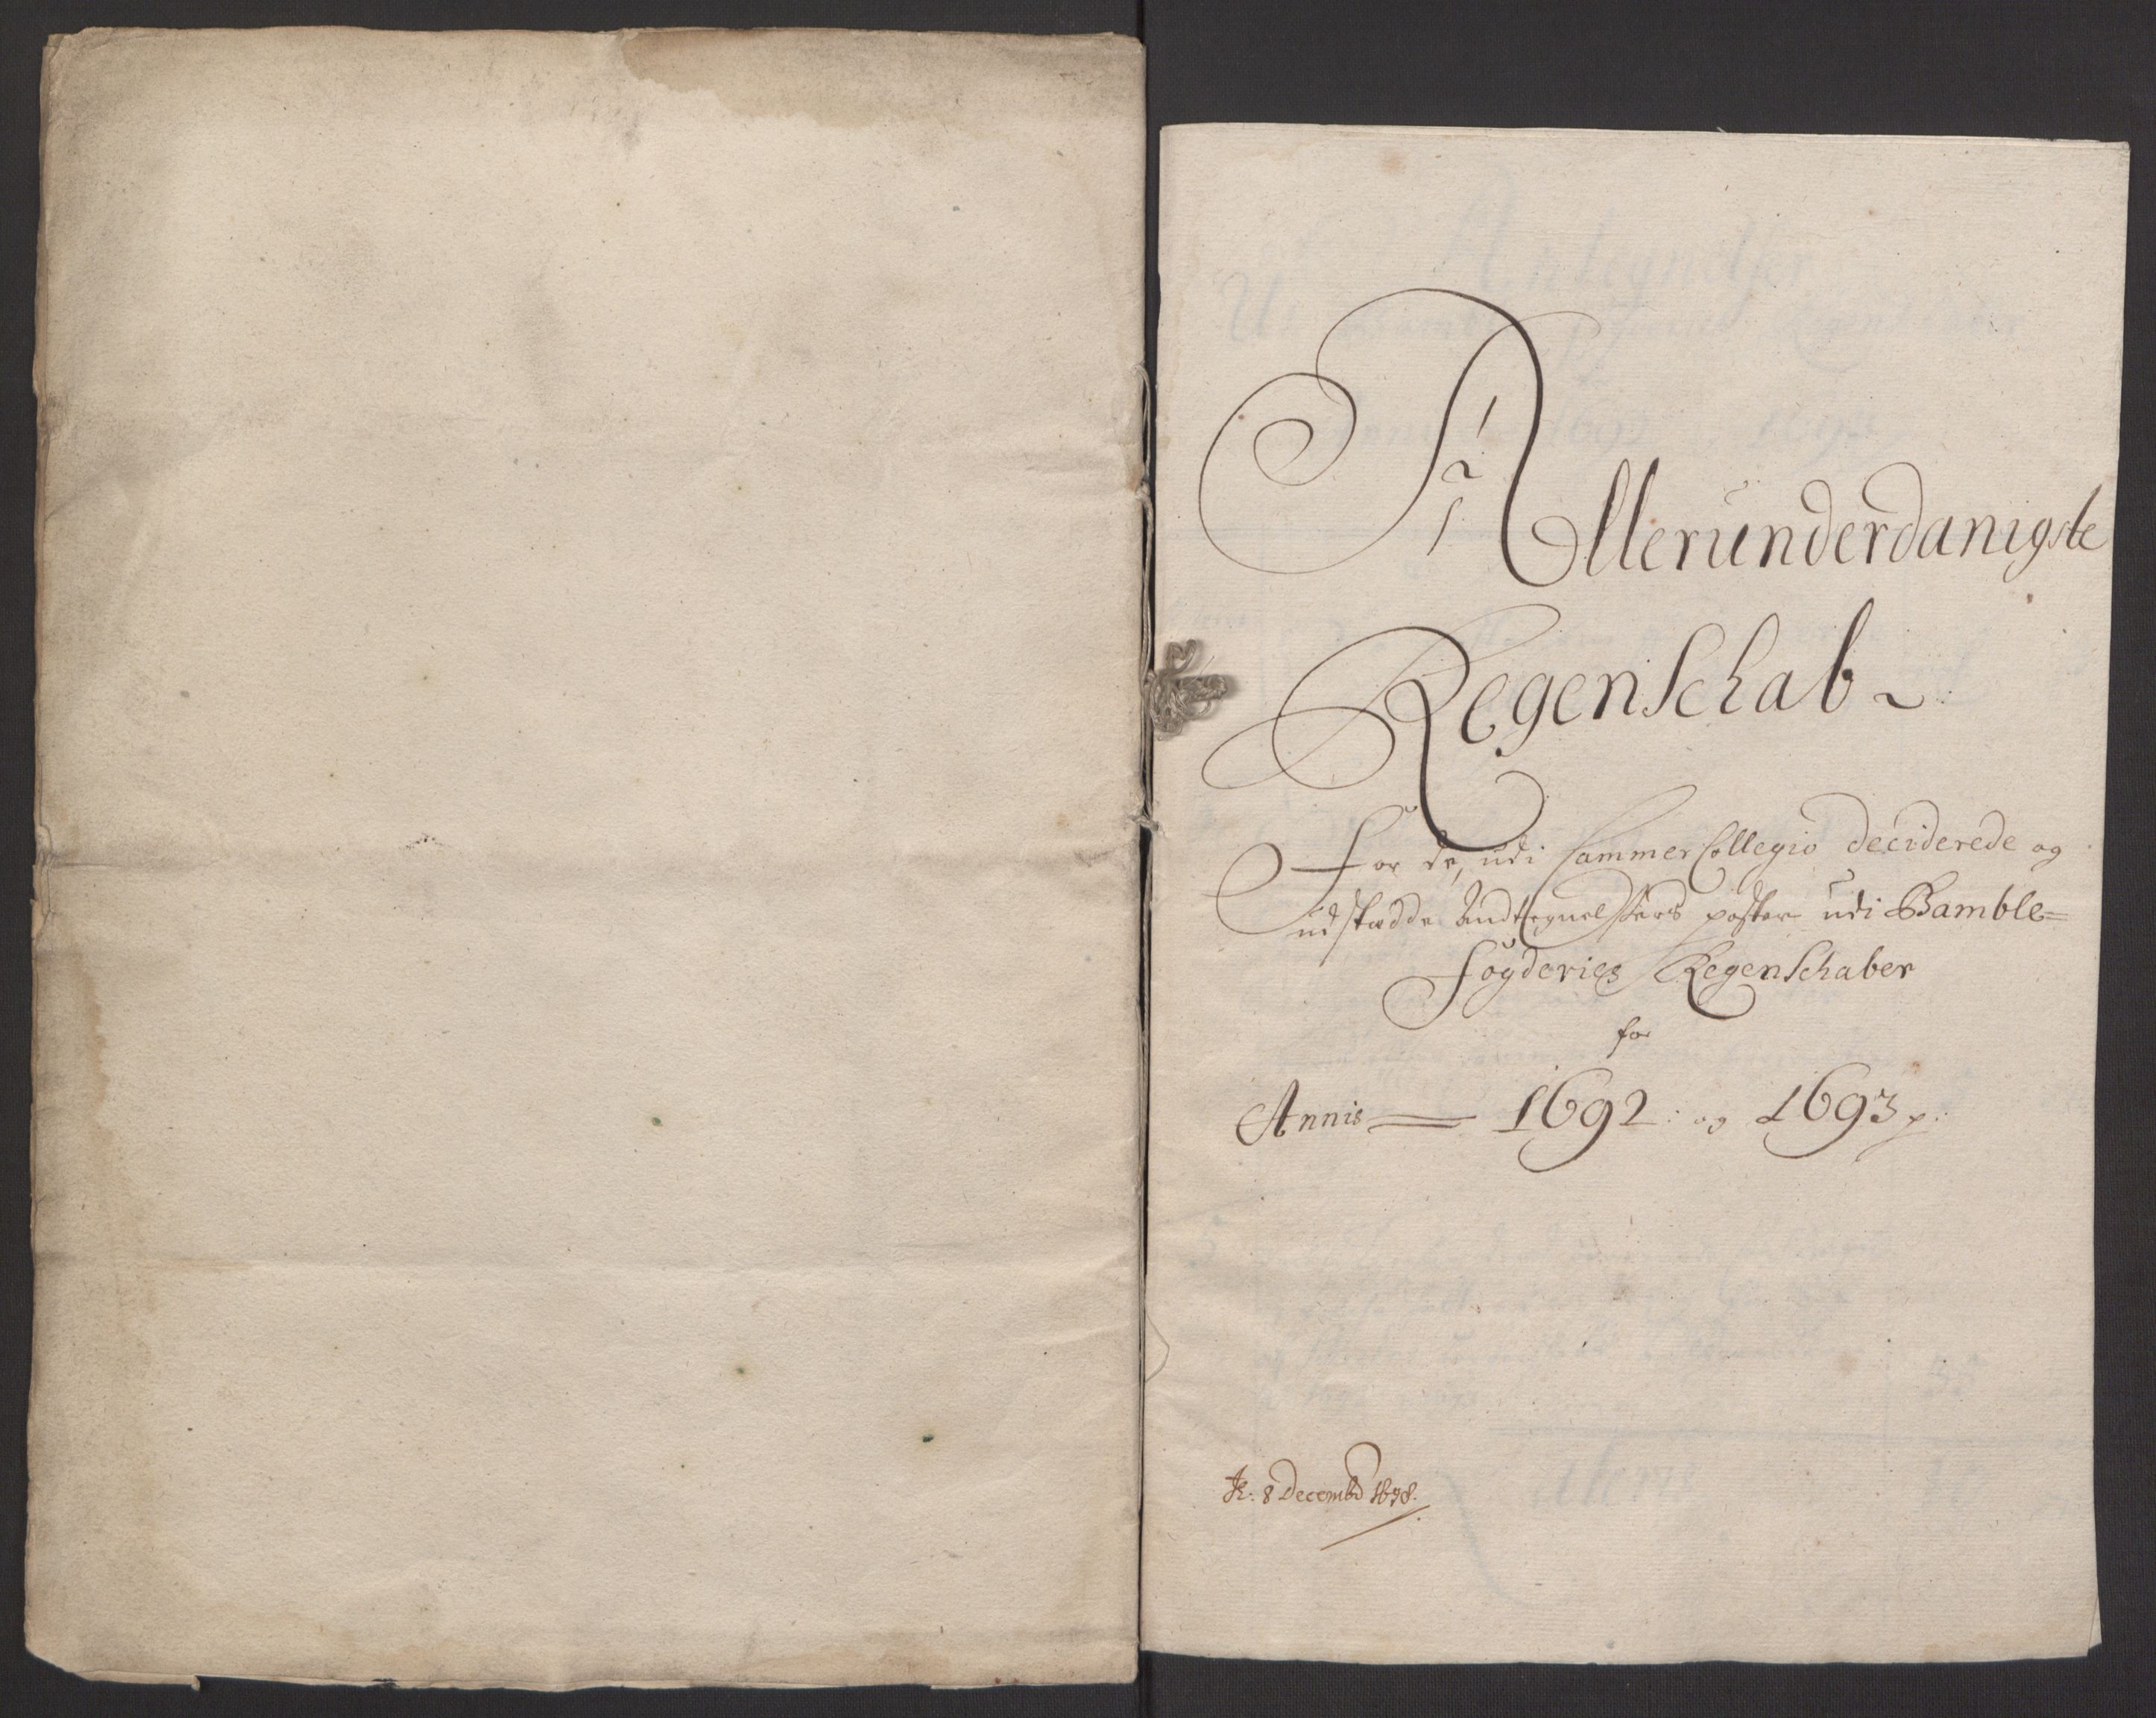 Allerunderdanigste
Regenschab
For de, udi Cammer Collegio deciderede og
udstædde Andtegnelssers poster udi Bamble=
Fogderies Regenschaber
for
Annis 1692: og 1693 p:
8 Decembr 1698.